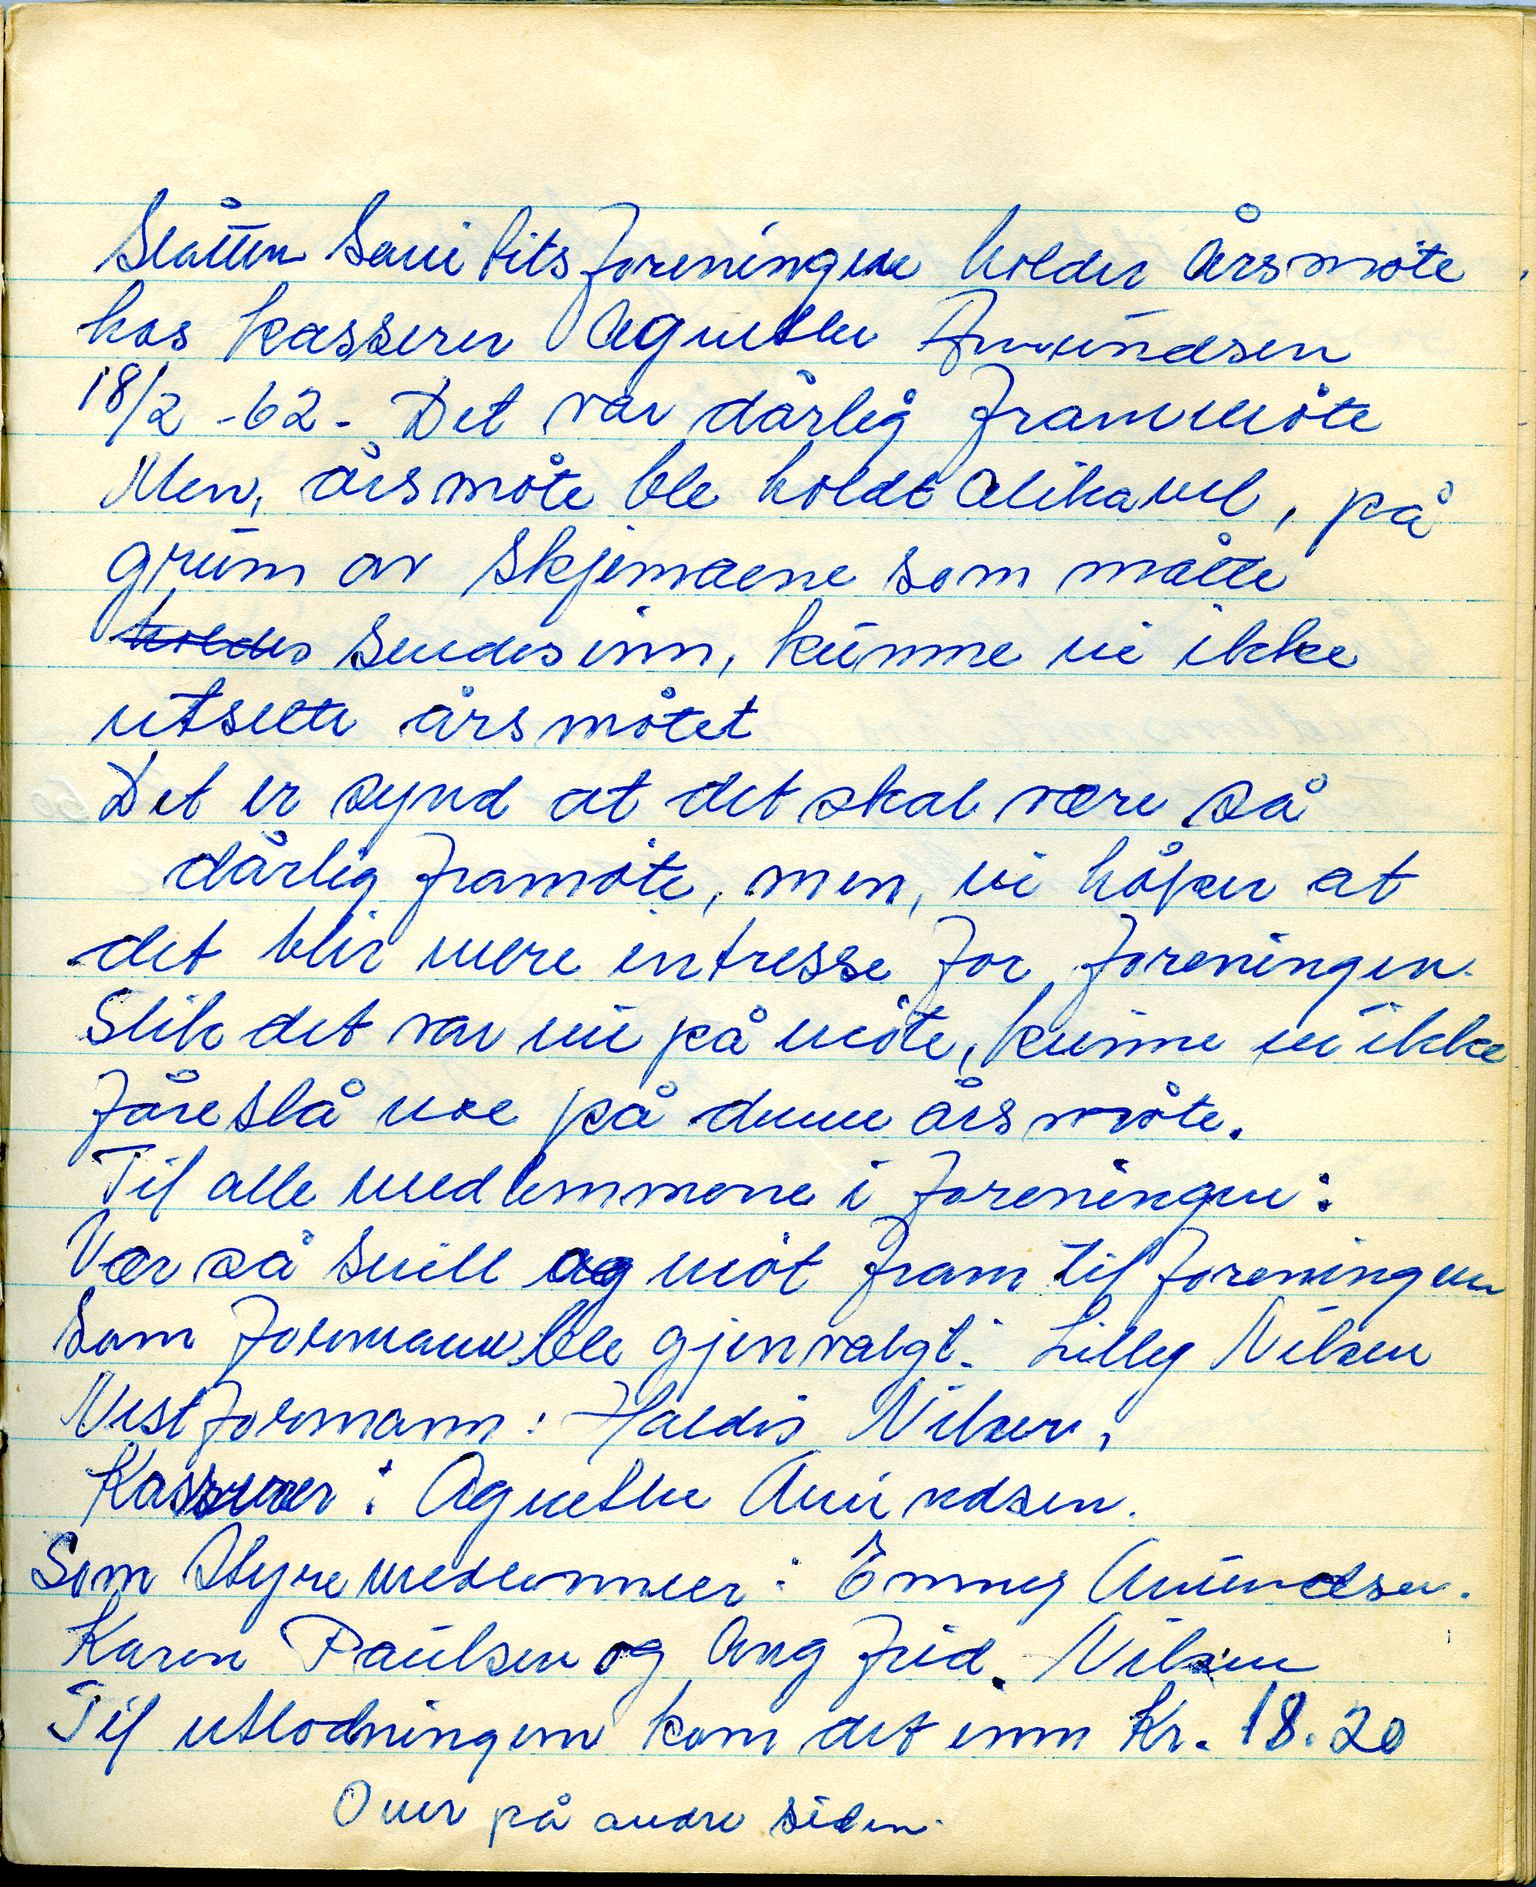 Slåtten Sanitetsforeningen holder årsmøte
hos kasserer Agnethe Amundsen
18/2 -62 - Det var dårlig frammøte
Men, årsmøte ble holdt alikavel, på
grunn av skjemaene som måtte
holdes sendes inn, kunne vi ikke
utsette årsmøtet
Det er synd at det skal være så
dårlig framøte, men, vi håper at
det blir mere intresse for foreningen.
Slik det var nu på møte, kunne vi ikke
føreslå noe på denne årsmøte.
Til alle medlemmene i foreningen:
Vær så snill og møt fram til foreningen
Som formann ble gjenvalgt: Lilly Nilsen
Nestformann: Haldis Nilsen,
Kasserer: Agnethe Amundsen.
Som styremedlemmer: Emmy Amundsen.
Karen Paulsen og Ang frid. Nilsen
Til utlodningen kom det inn Kr. 18.20
Over på andre siden.